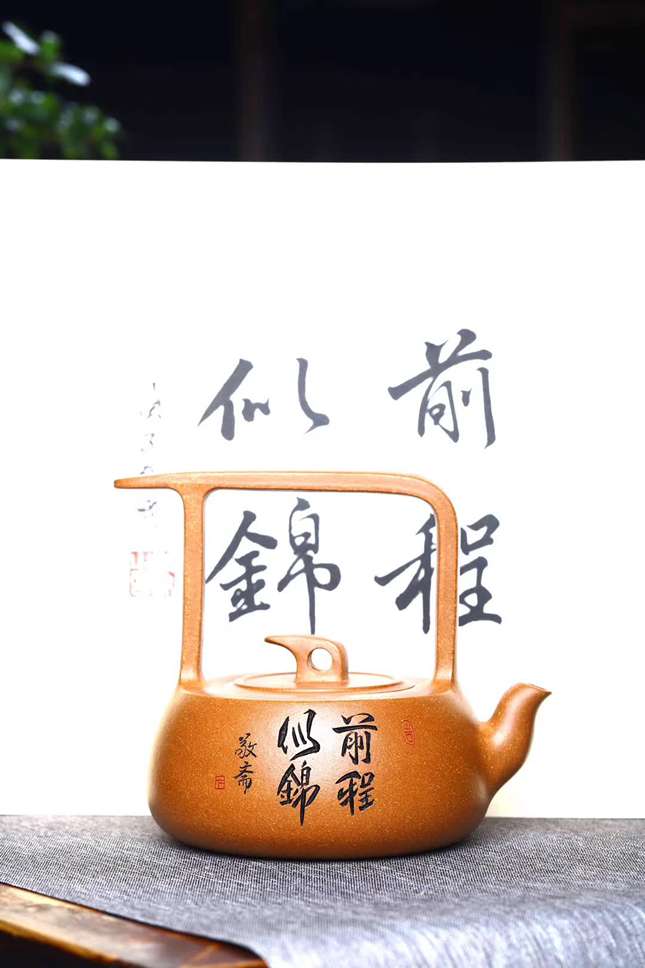 前程
似錦
前程
似錦
敬斋